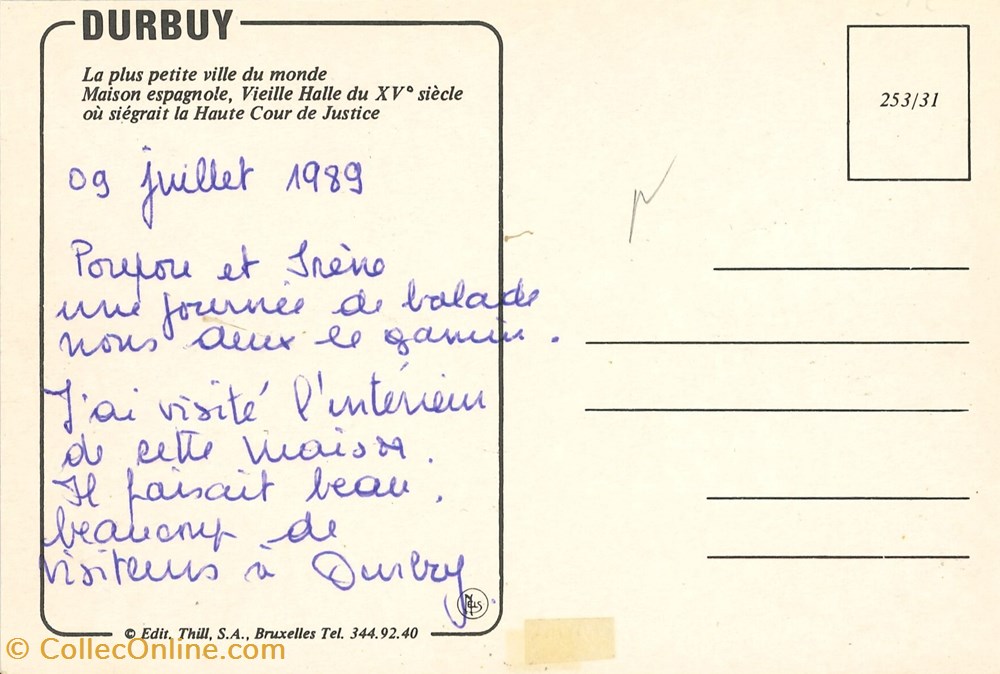 DURBUY
La plus petite ville du monde
Maison espagnole, Vieille Halle du XVᵉ siècle
où siégrait la Haute Cour de Justice
253/31
09 juillet 1989
et Irène
une journée de balade
nous deux le gamin.
J'ai visité l'intérieur
de cette maison.
Il faisait beau,
beaucoup de
visiteurs à Durbuy.
NELS
© Edit. Thill, S.A., Bruxelles Tel. 344.92.40
© CollecOnline.com